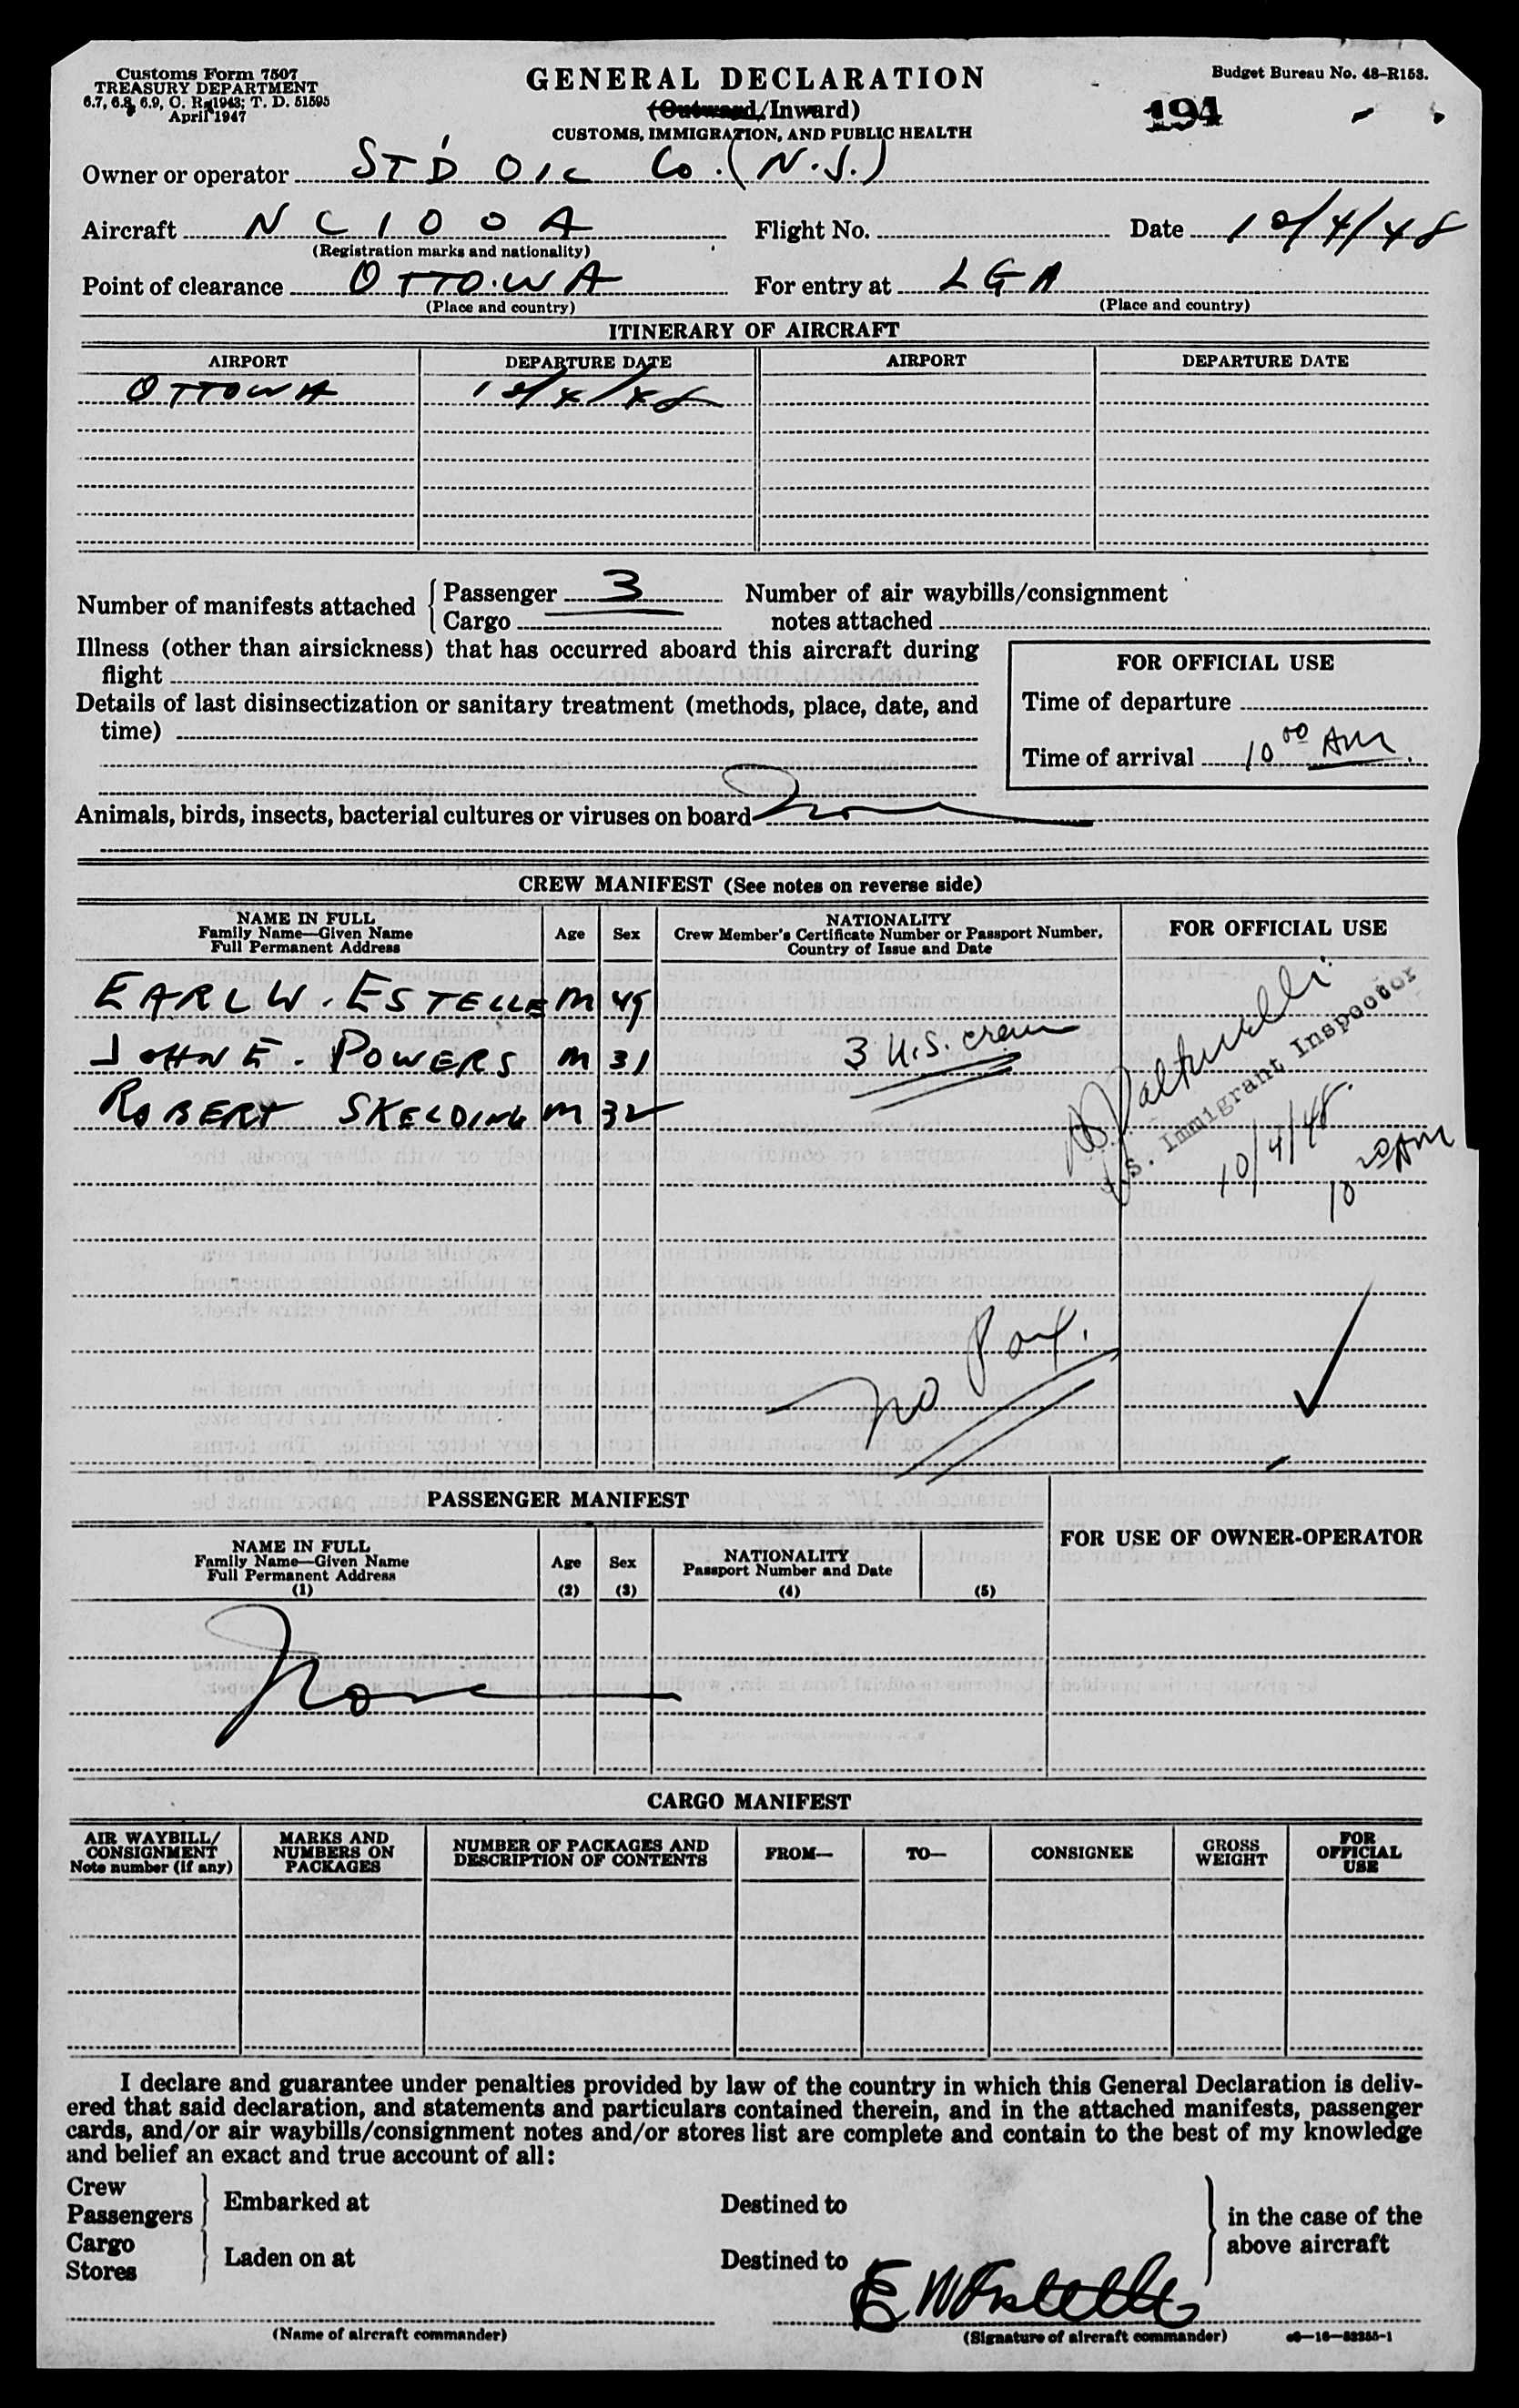 Customs Form 7507
TREASURY DEPARTMENT
6.7, 6.8, 6.9, C. R. 1943; T. D. 51595
April 1947
GENERAL DECLARATION
(Outward/Inward)
CUSTOMS, IMMIGRATION, AND PUBLIC HEALTH
Budget Bureau No. 48-R153.
194
Owner or operator ST'D OIL Co. (N.J.)
Aircraft NC100A Flight No. Date 10/4/48
(Registration marks and nationality)
Point of clearance OTTOWA For entry at LGA
(Place and country) (Place and country)
ITINERARY OF AIRCRAFT
AIRPORT DEPARTURE DATE AIRPORT DEPARTURE DATE
OTTOWA 10/4/48
Number of manifests attached { Passenger 3 Number of air waybills/consignment
Cargo notes attached
Illness (other than airsickness) that has occurred aboard this aircraft during
flight
Details of last disinsectization or sanitary treatment (methods, place, date, and
time)
FOR OFFICIAL USE
Time of departure
Time of arrival 10 00 AM
Animals, birds, insects, bacterial cultures or viruses on board None
CREW MANIFEST (See notes on reverse side)
NAME IN FULL
Family Name—Given Name
Full Permanent Address
Age Sex
NATIONALITY
Crew Member's Certificate Number or Passport Number,
Country of Issue and Date
FOR OFFICIAL USE
EARL W. ESTELLE M 49
JOHN E. POWERS M 31
ROBERT SKELDING M 32
3 U.S. crew
U.S. Immigrant Inspector
10/4/48.
10 20 AM
No Pax.
PASSENGER MANIFEST
NAME IN FULL
Family Name—Given Name
Full Permanent Address
(1)
Age
(2)
Sex
(3)
NATIONALITY
Passport Number and Date
(4) (5)
FOR USE OF OWNER-OPERATOR
None
CARGO MANIFEST
AIR WAYBILL/
CONSIGNMENT
Note number (if any)
MARKS AND
NUMBERS ON
PACKAGES
NUMBER OF PACKAGES AND
DESCRIPTION OF CONTENTS
FROM—
TO—
CONSIGNEE
GROSS
WEIGHT
FOR
OFFICIAL
USE
I declare and guarantee under penalties provided by law of the country in which this General Declaration is deliv-
ered that said declaration, and statements and particulars contained therein, and in the attached manifests, passenger
cards, and/or air waybills/consignment notes and/or stores list are complete and contain to the best of my knowledge
and belief an exact and true account of all:
Crew
Passengers } Embarked at Destined to
Cargo
Stores } Laden on at Destined to
in the case of the
above aircraft
E W Estelle
(Name of aircraft commander) (Signature of aircraft commander)